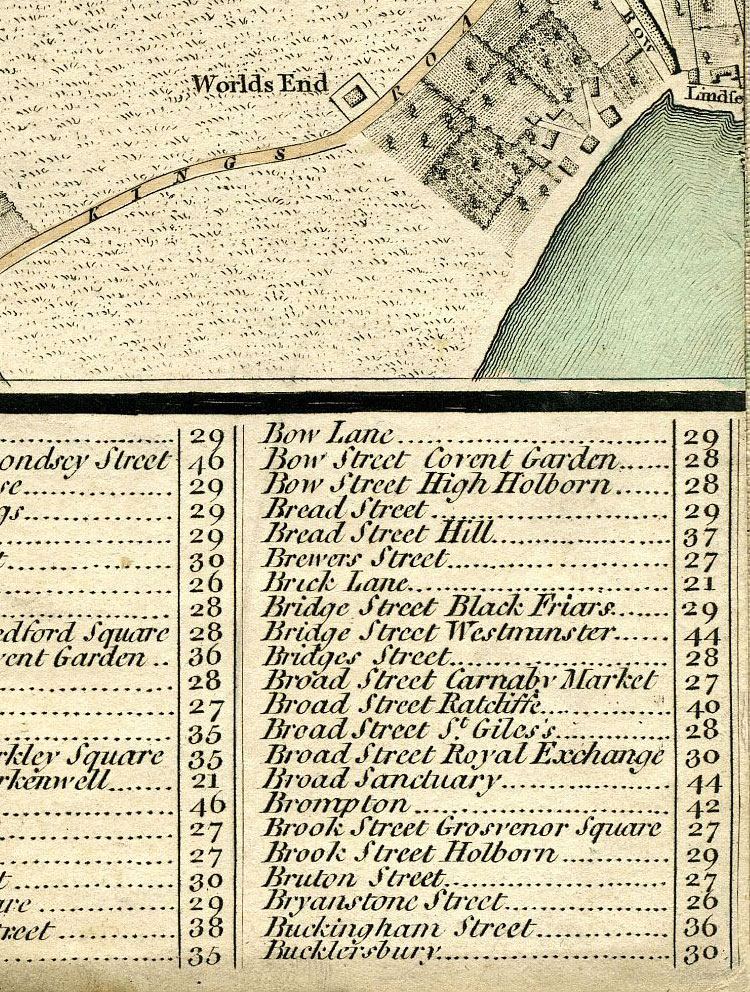 ROW
Worlds End
Lindse
KINGS ROA
29
ondsey Street 46
se 29
gs 29
29
t 30
26
28
edford Square 28
vent Garden 36
28
27
35
rkley Square 35
rkenwell 21
46
27
27
t 30
are 29
treet 38
35
Bow Lane 29
Bow Street Covent Garden 28
Bow Street High Holborn 28
Bread Street 29
Bread Street Hill 37
Brewers Street 27
Brick Lane 21
Bridge Street Black Friars 29
Bridge Street Westminster 44
Bridges Street 28
Broad Street Carnaby Market 27
Broad Street Ratcliffe 40
Broad Street St Giles's 28
Broad Street Royal Exchange 30
Broad Sanctuary 44
Brompton 42
Brook Street Grosvenor Square 27
Brook Street Holborn 29
Bruton Street 27
Bryanstone Street 26
Buckingham Street 36
Bucklersbury 30